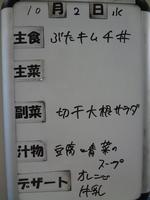 10月2日水
主食 ぶたキムチ丼
主菜
副菜 切干大根サラダ
汁物 豆腐と青菜の
スープ
デザート オレンジ
牛乳